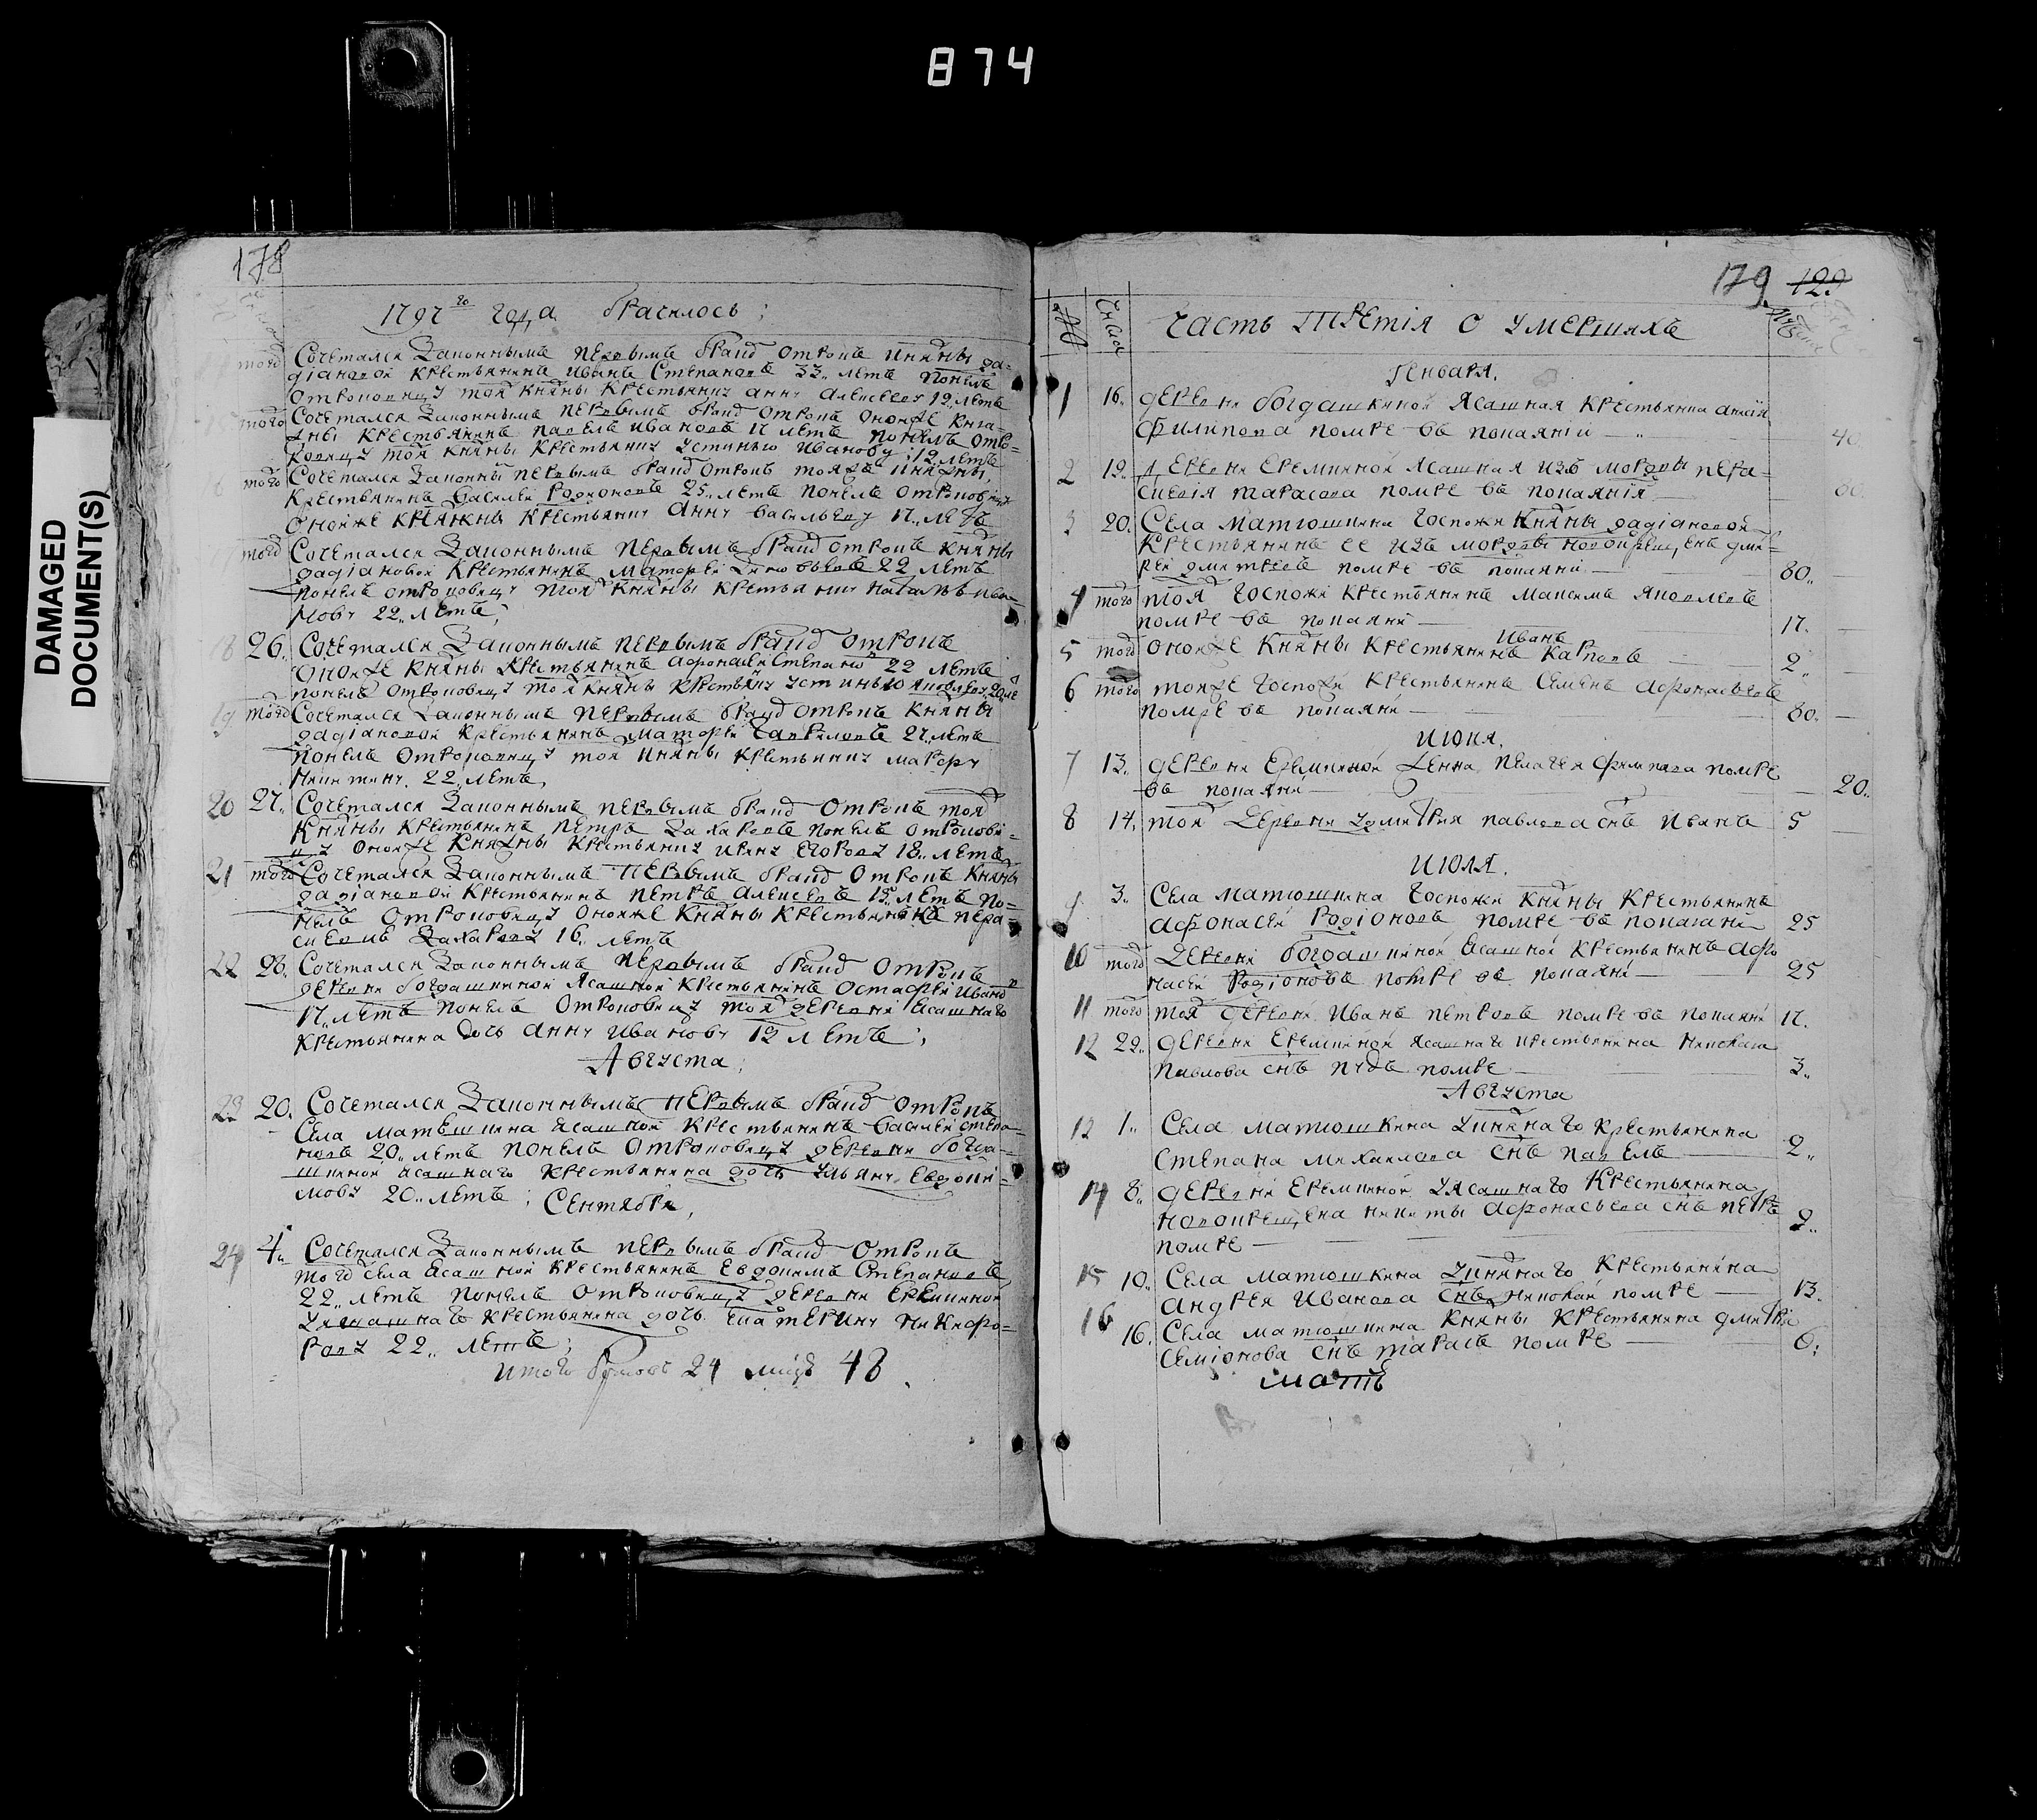 874
DAMAGED
DOCUMENT(S)
178
1797го года бračилось;
того Сочетался законнымъ первымъ бракомъ отрокъ княжны да-
діановой крестьянинъ Иванъ Степановъ 33 летъ понелъ
отроковицу той княжны крестьянину анну алексееву 19 летъ
того Сочетался законнымъ первымъ бракомъ отрокъ оноже княж-
ны крестьянинъ павелъ ивановъ 17 летъ понелъ отро-
ковицу той княжны крестьянину устинью Иванову 19 летъ
того Сочетался законны первымъ бракомъ отрокъ тояже княжны
крестьянинъ василей Родионовъ 25 летъ понелъ отроковицу
оноиже княжны крестьянину анну васильеву 17 летъ
того Сочетался законнымъ первымъ бракомъ отрокъ княжны
дадіановой крестьянинъ матфей 22 летъ
понелъ отроковицу тоя княжны крестьянину наталью ива-
нову 22 летъ;
18 26 Сочетался законнымъ первымъ бракомъ отрокъ
оноже княжны крестьянинъ афонасей Степано 22 летъ
понелъ отроковицу той княжны крестьянину устинью яковлеву 20 ле
19 того Сочетался законнымъ первымъ бракомъ отрокъ княжны
дадіановой крестьянинъ матфей гавриловъ 27 летъ
понелъ отроковицу той княжны крестьянину марфу
никитину 22 летъ
20 27 Сочетался законнымъ первымъ бракомъ отрокъ тоя
княжны крестьянинъ петръ захаровъ понелъ отрокови-
цу оноже княжны крестьянину ирину егорову 18 летъ
21 того Сочетался законнымъ первымъ бракомъ отрокъ княжны
дадіановой крестьянинъ петръ алексеевъ 19 летъ по-
нелъ отроковицу оноиже княжны крестьянинна пера-
скевию захарову 16 летъ
22 26. Сочетался законнымъ первымъ бракомъ отрокъ
деревни богдашкиной ясашной крестьянинъ остафей Ивано
17 летъ понелъ отроковицу тоя деревни ясашнаго
крестьянина дочь анну Иванову 19 летъ;
Августа;
23 20. Сочетался законнымъ первымъ бракомъ отрокъ
Села матюшкина ясашной крестьянинъ василей степа-
новъ 20 летъ понелъ отроковицу деревни богда-
шкиной ясашнаго крестьянина дочь ульяну Евдоки-
мову 20 летъ; Сентября,
24 4 Сочетался законнымъ первымъ бракомъ отрокъ
того села ясашной крестьянинъ Евдокимъ Степановъ
22 летъ понелъ отроковицу деревни Еремкиной
ясашнаго крестьянина дочь екатерину Никифо-
рову 22 летъ;
итого браковъ 24 лицъ 48
179 129
Числа
Часть третія о умершихъ
Генваря.
1 16. деревни богдашкиной ясашная крестьянка анисія
Филипова помре въ покаяніи 40
2 19 деревни Еремкиной ясашная изъ мордвы пера-
скевія тарасова помре въ покаянія
3 20. Села матюшкина госпожи княжны дадіановой
крестьянинъ ее изъ мордвы новокрещенъ дми-
рей дмитревъ помре въ покаяни 80
4 того тоя госпожи крестьянинъ максимъ яковлевъ
помре въ покаяни 17.
5 того оноже княжны крестьянинъ Иванъ Карповъ 2
6 того тояже госпожи крестьянинъ Семенъ афонасьевъ
помре въ покаяни 80.
Июня.
7 13. деревни Еремкиной женка пелагея филипова помре
въ покаяни 20.
8 14. тоя деревни удмитрия павлова снъ Иванъ 5
Июля.
9 3. Села матюшкина госпожи княжны крестьянинъ
афонасей Родіоновъ помре въ покаяни 25
10 того деревни богдашкиной ясашной крестьянинъ афо
насей Родіоновъ помре въ покаяни 25
11 того тоя деревни Иванъ петровъ помре въ покаяни 17.
12 22. деревни Еремкиной ясашнаго крестьянина николая
павлова снъ помре 3.
Августа
12 1. Села матюшкина укняжнаго крестьянина
степана михаилова снъ павелъ 2
14 8. деревни Еремкиной уясашнаго крестьянина
новокрещена никиты афонасьева снъ петръ 2
помре
15 10. Села матюшкина укняжнаго крестьянина
андрея Иванова снъ николай помре 13.
16 16. Села матюшкина княжны крестьянина дмитрія
Семіонова снъ тарасъ помре 6.